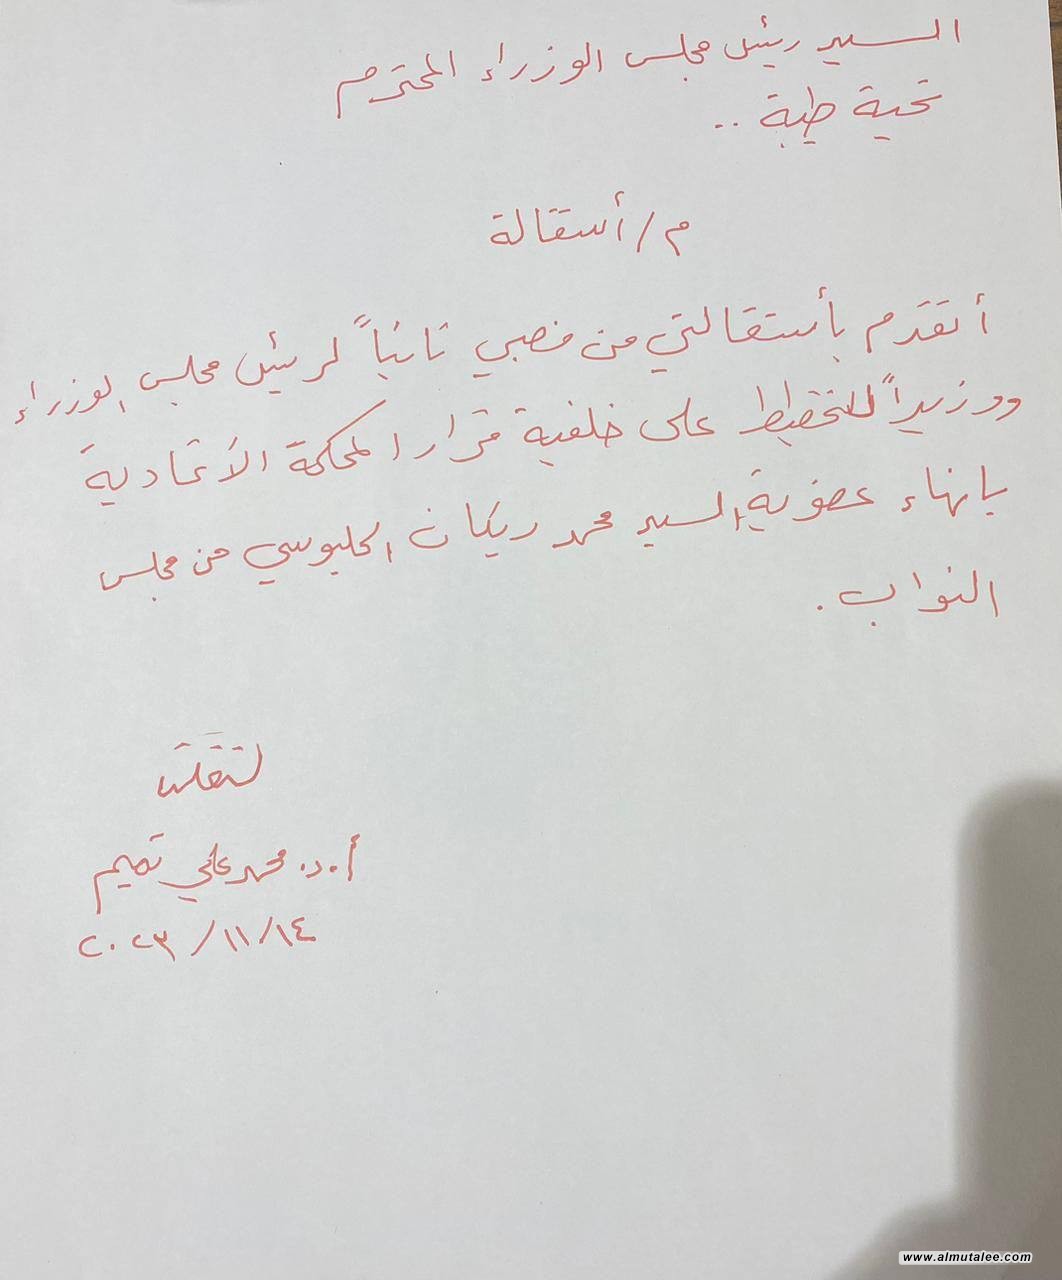 السيد رئيس مجلس الوزراء المحترم
تحية طيبة ..
م/ أستقالة
أتقدم بأستقالتي من منصبي نائباً لرئيس مجلس الوزراء
ووزيراً للتخطيط على خلفية قرار المحكمة الأتحادية
بانهاء عضوية السيد محمد ريكان الحلبوسي من مجلس
النواب .
أ.د. محمد علي تميم
٢٠٢٣/١١/١٤
www.almutalee.com